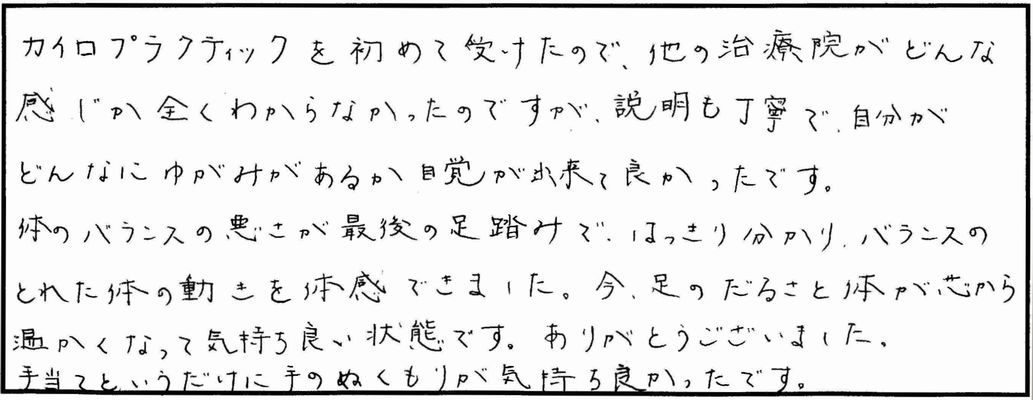 カイロプラクティックを初めて受けたので、他の治療院がどんな
感じか全くわからなかったのですが、説明も丁寧で、自分が
どんなにゆがみがあるか自覚が出来て良かったです。
体のバランスの悪さが最後の足踏みで、はっきり分かり、バランスの
とれた体の動きを体感できました。今、足のだるさと体が芯から
温かくなって気持ち良い状態です。ありがとうございました。
手当てというだけに手のぬくもりが気持ち良かったです。